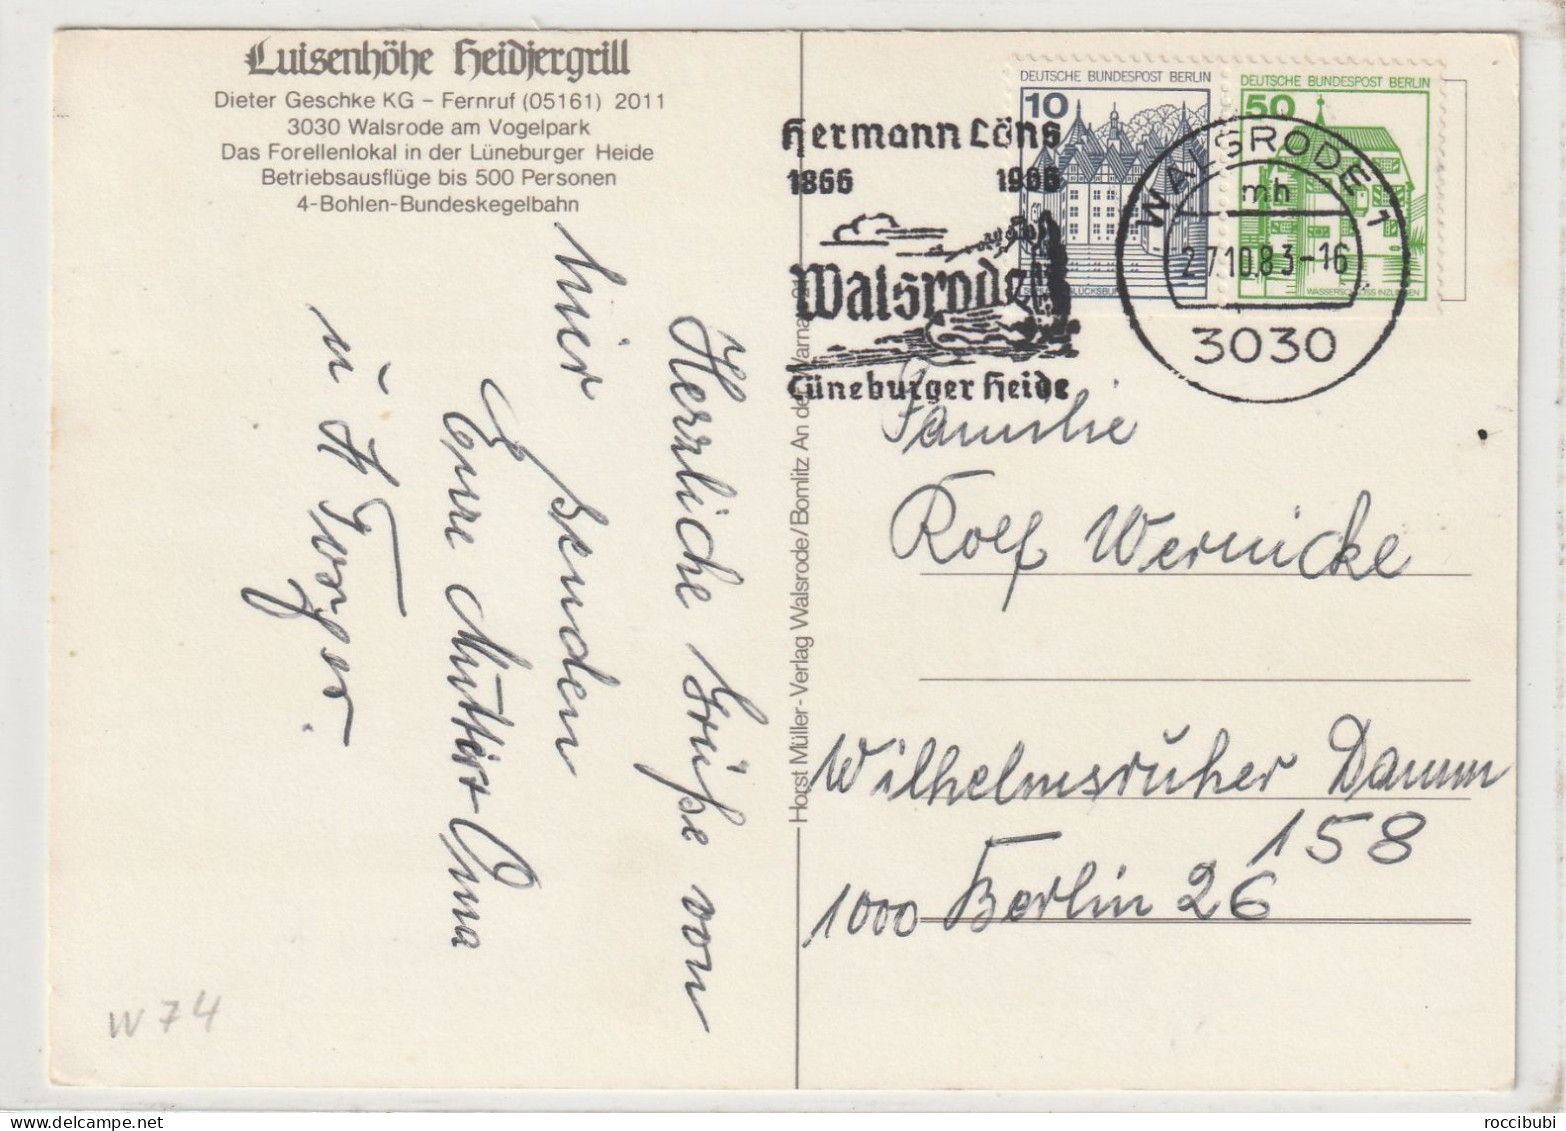 Luisenhöhe Heidjergrill
Dieter Geschke KG – Fernruf (05161) 2011
3030 Walsrode am Vogelpark
Das Forellenlokal in der Lüneburger Heide
Betriebsausflüge bis 500 Personen
4-Bohlen-Bundeskegelbahn
Herzliche Grüße von
hier
senden
Eure Mutti u. Oma
u.
W 74
Horst Müller-Verlag Walsrode/Bomlitz An der Varna 21
DEUTSCHE BUNDESPOST BERLIN
10
DEUTSCHE BUNDESPOST BERLIN
50
WASSERSCHLOSS INZLINGEN
Hermann Löns
1866 1966
Walsrode
Lüneburger Heide
WALSRODE 1
mh
27.10.83-16
3030
Familie
Rolf Wernicke
Wilhelmsruher Damm
158
1000 Berlin 26
roccibubi